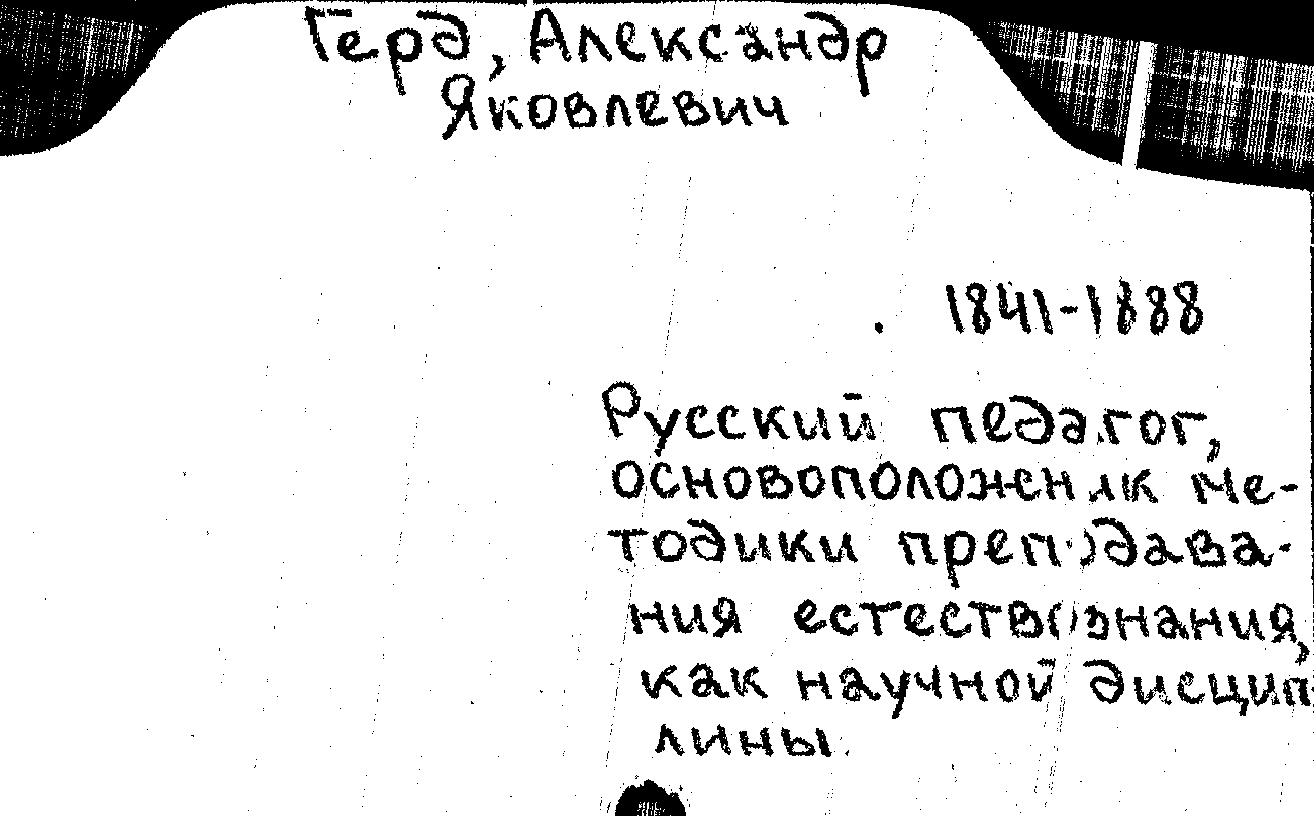 Герд, Александр
Яковлевич
1841-1888
Русский педагог,
основоположник ме-
тодики преподава-
ния естествознания,
как научной дисцип
лины.